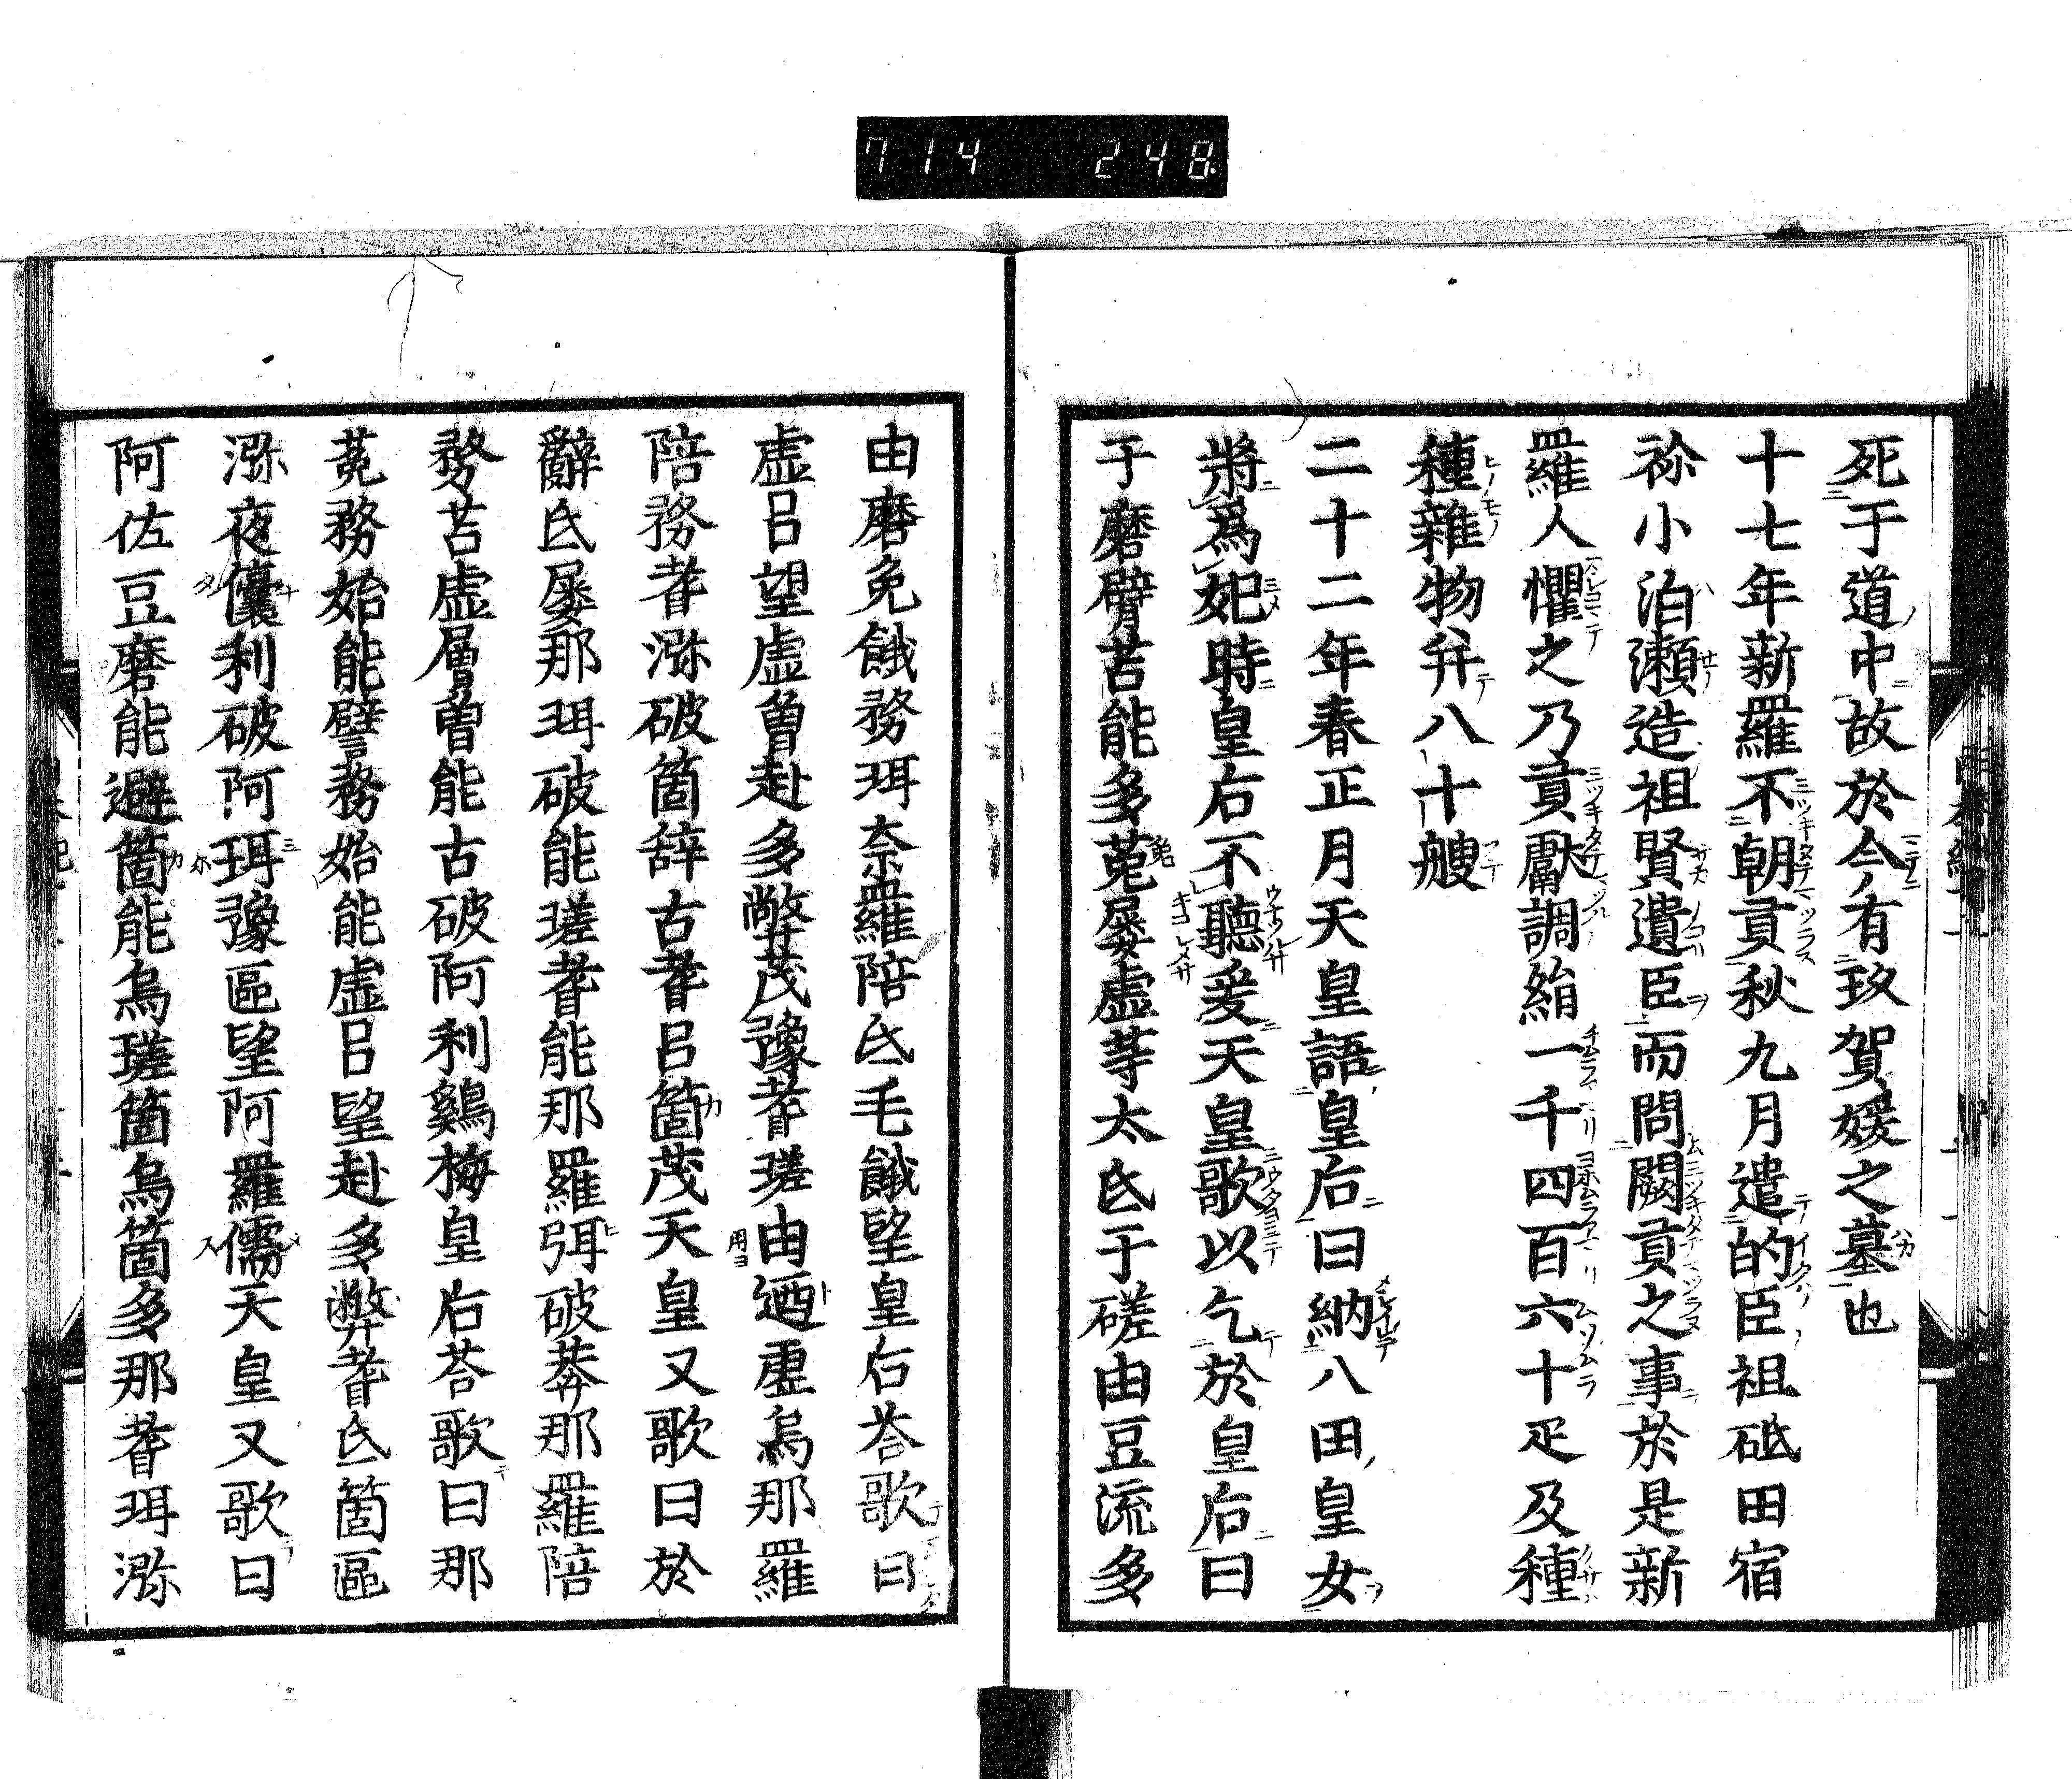 714 248
死于道中故於今有玖賀媛之墓也
十七年新羅不朝貢秋九月遣的臣祖砥田宿
祢小泊瀬造祖賢遺臣而問闕貢之事於是新
羅人懼之乃貢獻調絹一千四百六十疋及種
種雜物幷八十艘
二十二年春正月天皇語皇后曰納八田皇女
將爲妃時皇后不聽爰天皇歌以乞於皇后曰
于磨臂苫能多菟屡虚等太氐于磋由豆流多
由磨免餓務珥奈羅陪氐毛餓望皇后荅歌曰
虚呂望虚曾赴多弊茂豫耆瑳由迺虚烏那羅
陪務耆濔破箇辞古耆呂箇茂天皇又歌曰於
辭氐屡那珥破能瑳耆能那羅弭破莽那羅陪
務苫虚層曽能古破阿利鷄梅皇后荅歌曰那
菟務始能譬務始能虚呂望赴多弊耆氐箇區
濔夜儾利破阿珥豫區望阿羅儒天皇又歌曰
阿佐豆磨能避箇能烏瑳箇烏箇多那耆珥濔